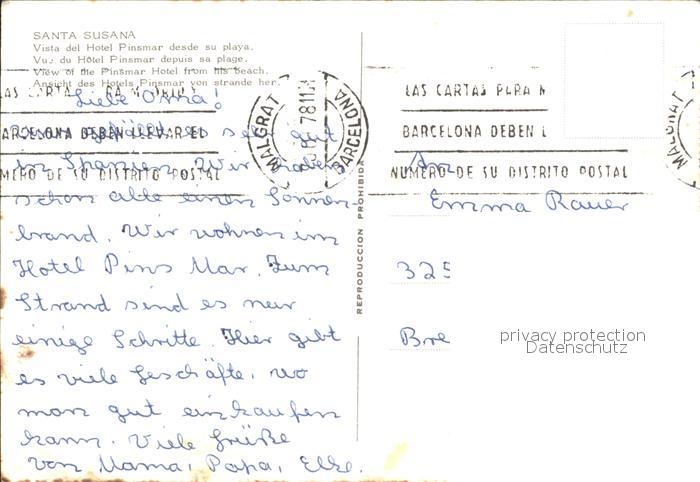 SANTA SUSANA
Vista del Hotel Pinsmar desde su playa.
Vue du Hôtel Pinsmar depuis sa plage.
View of the Pinsmar Hotel from his beach.
Ansicht des Hotels Pinsmar von strande her.
Liebe Oma!
es sehr gut
in Spanien. Wir haben
schon alle einen Sonnen-
brand. Wir wohnen im
Hotel Pins Mar. Zum
Strand sind es nur
einige Schritte. Hier gibt
es viele Geschäfte, wo
man gut einkaufen
kann. Viele Grüße
von Mama, Papa, Elke.
LAS CARTAS PARA M
BARCELONA DEBEN LLEVAR EL
NUMERO DE SU DISTRITO POSTAL
MALGRAT
BARCELONA
78
REPRODUCCION PROHIBIDA
LAS CARTAS PARA
BARCELONA DEBEN L
NUMERO DE SU DISTRITO POSTAL
MALGRAT
An
Emma Rauer
325
privacy protection
Datenschutz